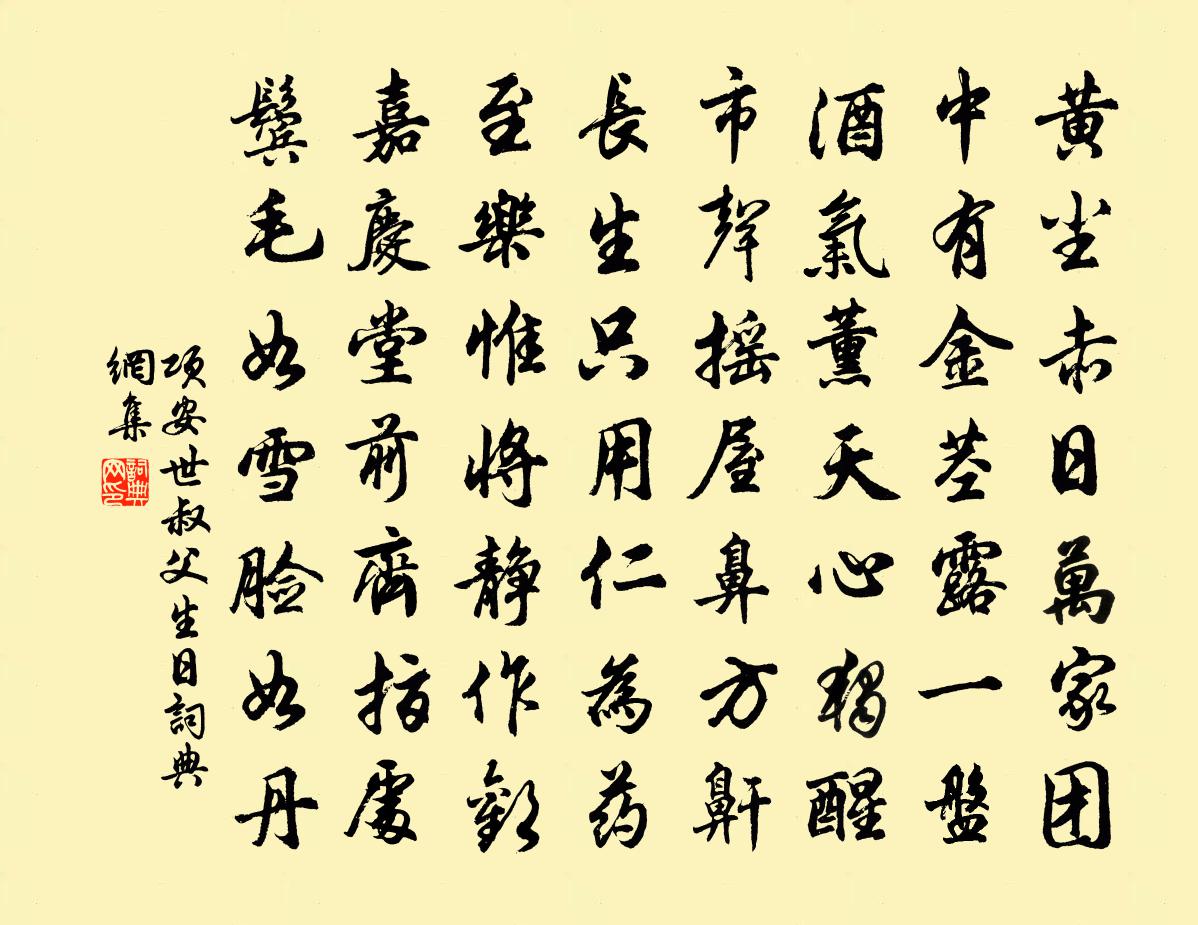 黄尘赤日萬家团
中有金茎露一盤
酒氣薫天心獨醒
市聲摇屋鼻方鼾
長生只用仁為药
至樂惟將静作歡
嘉慶堂前齊指處
鬓毛如雪脸如丹
项安世叔父生日詞典
網集
詞典
网印